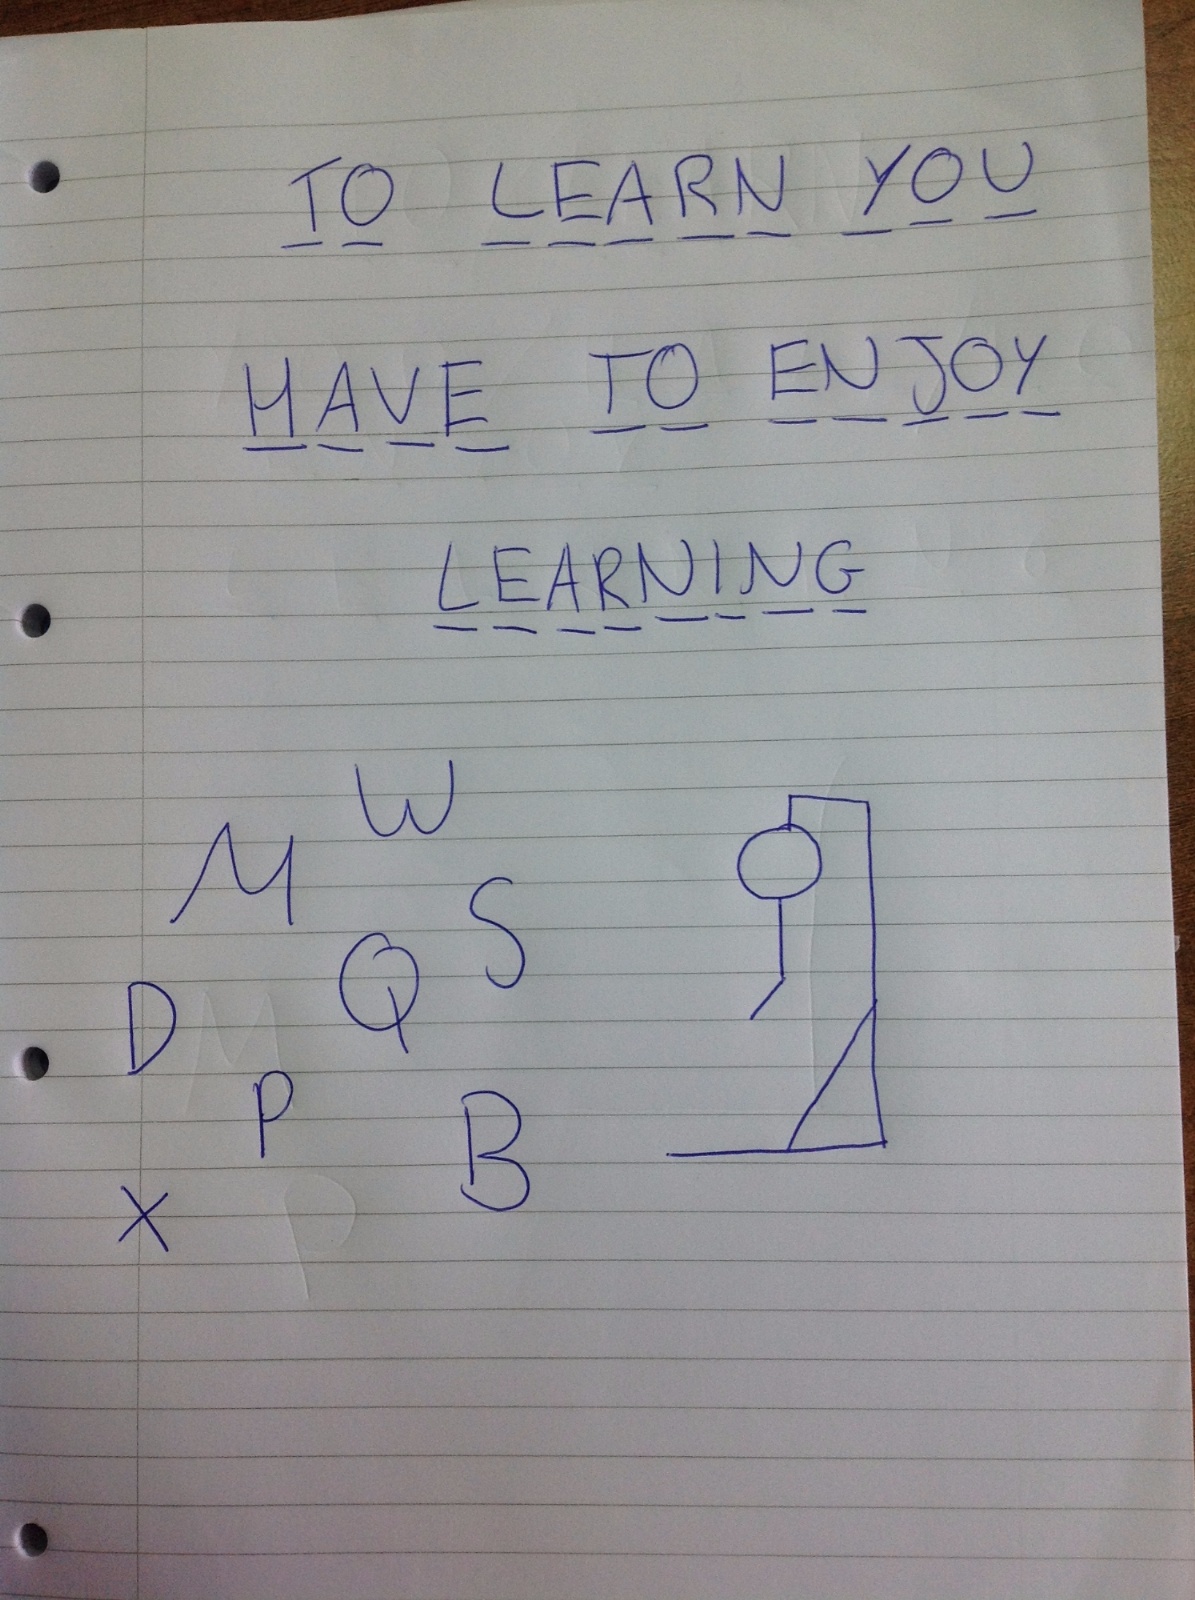 TO LEARN YOU
HAVE TO ENJOY
LEARNING
W
M
S
Q
D
P
B
X